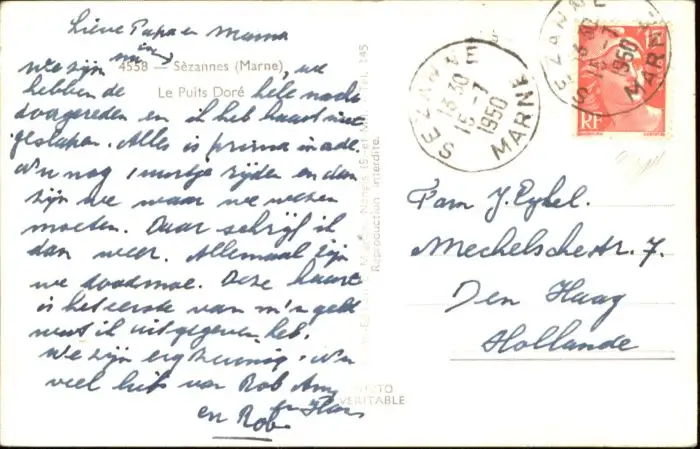 Lieve Papa en Mama
We zijn nu in
4558 - Sèzannes (Marne)
, we
hebben de hele nacht
Le Puits Doré
doorgereden en ik heb haast niet
geslapen. Alles is prima in orde.
Nu nog 1 uurtje rijden en dan
zijn we waar we wezen
moeten. Daar schrijf ik
dan weer. Allemaal zijn
we doodmoe. Deze kaart
is het eerste van m'n geld
wat ik uitgegeven heb.
We zijn erg zuinig. Nu
veel liefs van Rob Amy
en Hans
en Rob
145
Reproduction interdite.
PHOTO
VERITABLE
SEZANNE
13 30
15-7
1950
MARNE
SEZANNE
13 30
15-7
1950
MARNE
RF
Fam J. Eykel.
Mechelschestr. 7.
Den Haag
Hollande